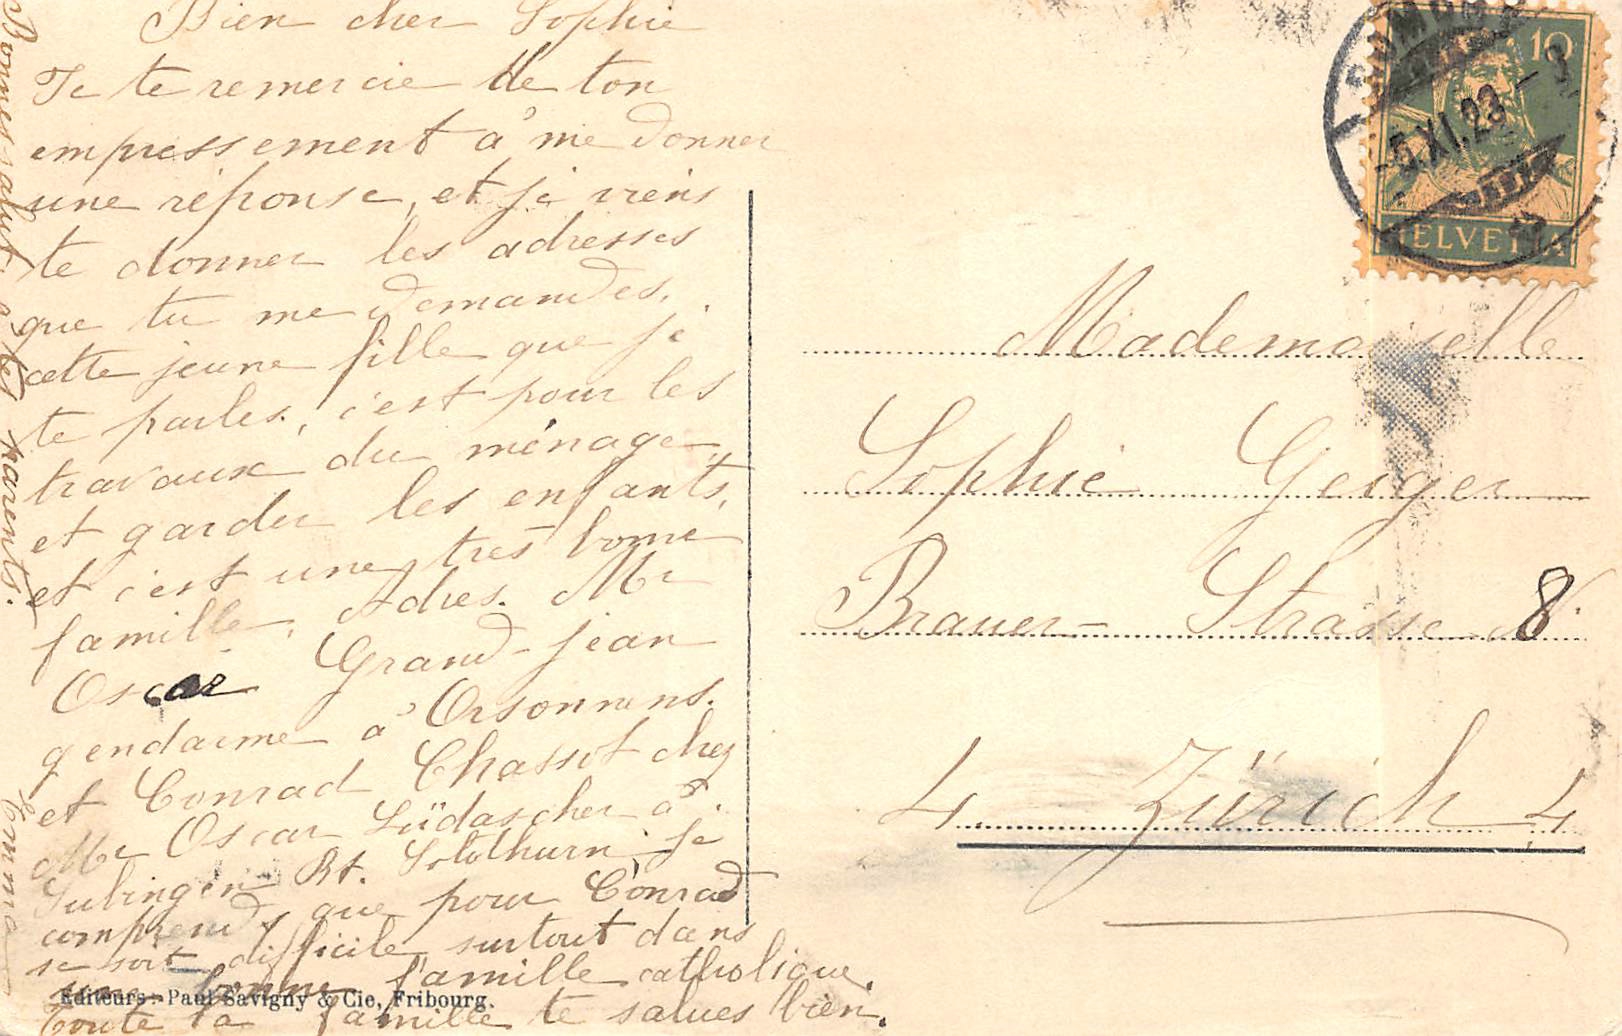 Bien cher Sophie
Je te remercie de ton
empressement à me donner
une réponse, et je viens
te donner les adresses
que tu me demandes.
cette jeune fille que je
te parles, c'est pour les
travaux du ménage,
et garder les enfants,
et c'est une très bonne
famille. Adres. Mr
Oscar Grand-jean
gendarme à Orsonnens.
et Conrad Chassot chez
Mr Oscar Lüdascher à
Subingen Kt. Solothurn, je
comprends que pour Conrad
se soit difficile, surtout dans
une bonne famille catholique.
toute la famille te salues bien.
Bonnes salut à tes parents.
Emma
Editeurs: Paul Savigny & Cie, Fribourg.
10
5.XI.23.-8
HELVETIA
Mademoiselle
Sophie Geiger
Brauer-Strasse 8
4. Zürich 4